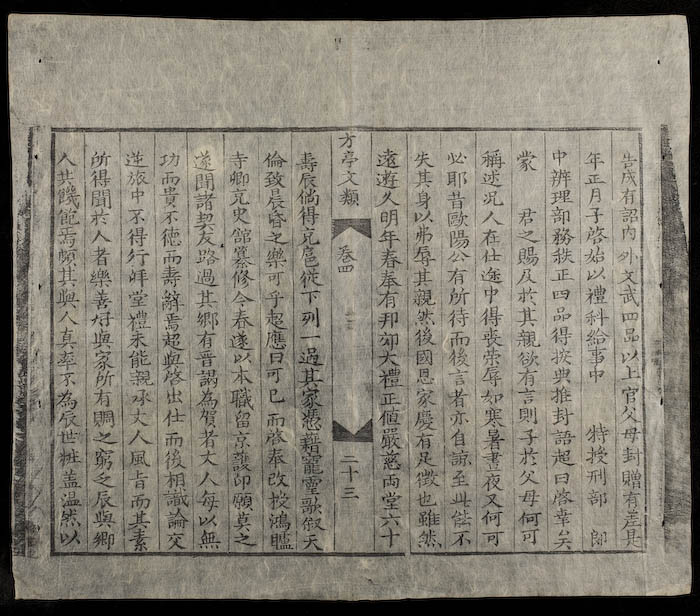 告成有詔内外文武四品以上官父母封贈有差是
年正月子啓始以禮科給事中 特授刑部 郎
中辨理部務秩正四品得按典推封語起曰啓幸矣
蒙 君之賜及於其親欲有言則子於父母何可
稱述况人在仕途中得喪榮辱如寒暑晝夜又何可
必耶昔歐陽公有所待而後言者亦自諒至此能不
失其身以弗辱其親然後國恩家慶有足徵也雖然
遠遊久明年春奉有邦郊大禮正值嚴慈两堂六十
方亭文類
卷四
二十三
壽辰倘得充扈從下列一過其家憑藉寵靈歌叙天
倫致晨昏之樂可乎超應曰可已而啓奉改授鴻臚
寺卿充史館纂修今春遂以本職留京護印願莫之
遂聞諸契友路過其鄉有晋謁為賀者丈人每以無
功而貴不德而壽辭焉超與啓出仕而後相識論交
逆旅中不得行拜堂禮未能親承丈人風旨而其素
所得聞於人者樂善好與家所有賙之窮乏辰與鄉
人共饑飽焉頋其與人真率不為辰世粧盖温然以